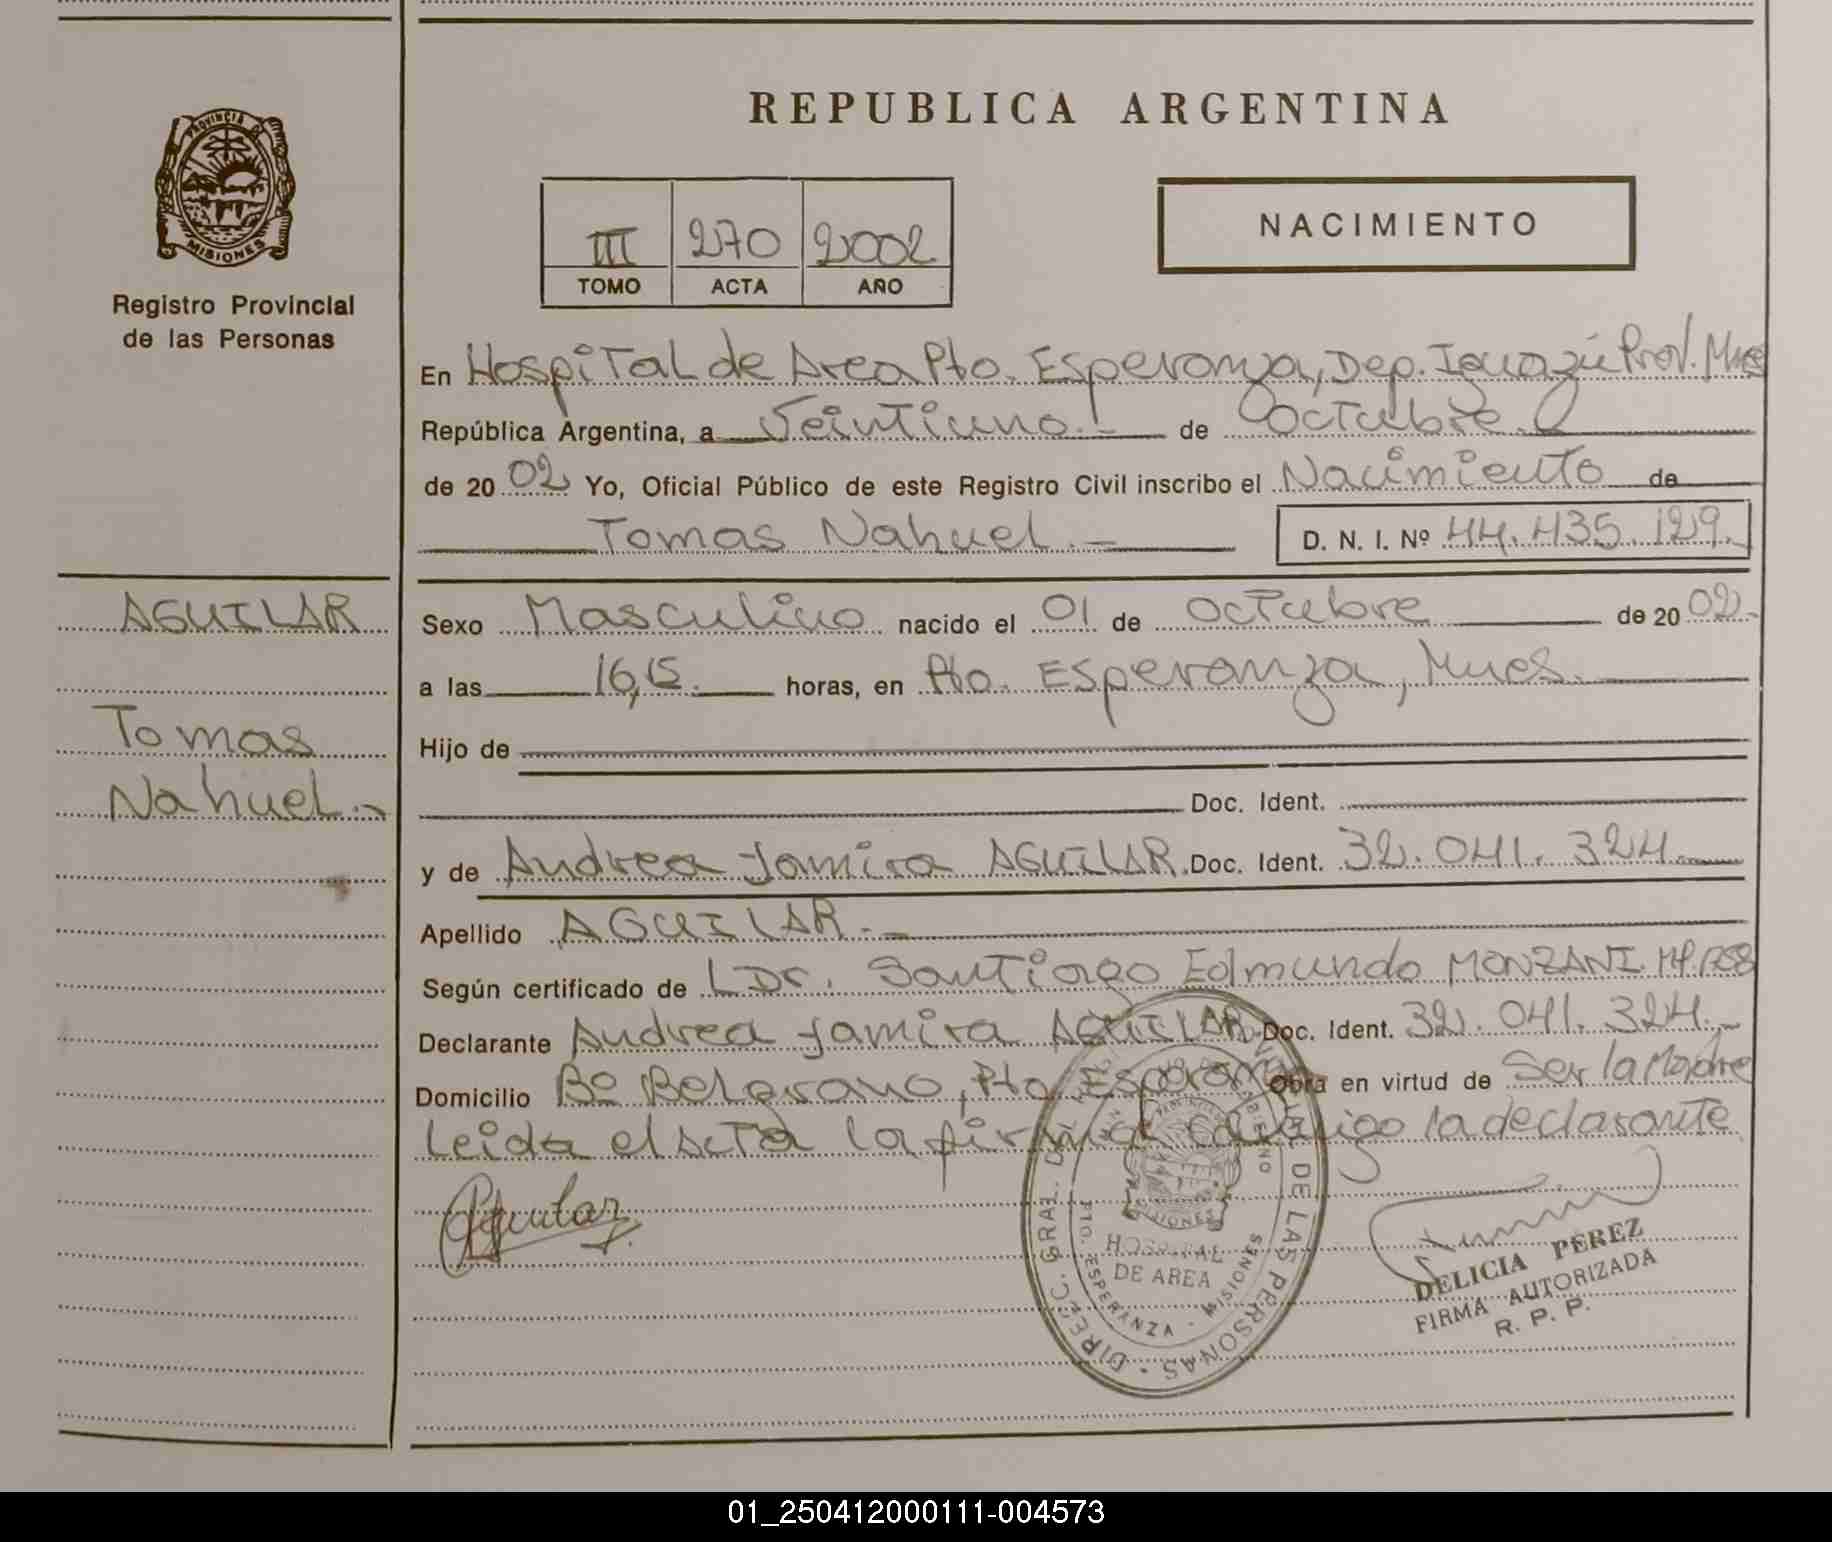 REPUBLICA ARGENTINA
PROVINCIA DE
MISIONES
Registro Provincial
de las Personas
III 270 2002
TOMO ACTA AÑO
NACIMIENTO
En Hospital de Area Pto. Esperanza, Dep. Iguazú Prov. Mnes
República Argentina, a Veintiuno.- de Octubre
de 2002 Yo, Oficial Público de este Registro Civil inscribo el Nacimiento de
Tomas Nahuel.- D. N. I. Nº 44.435.129.-
AGUILAR
Tomas
Nahuel.-
Sexo Masculino nacido el 01 de Octubre de 2002.-
a las 16,15. horas, en Pto. Esperanza, Mnes.
Hijo de
Doc. Ident.
y de Andrea Jamira AGUILAR. Doc. Ident. 32.041.324.
Apellido AGUILAR.-
Según certificado de L Dr. Santiago Edmundo MONZANI. MP.
Declarante Andrea Jamira AGUILAR. Doc. Ident. 32.041.324.-
Domicilio Bº Belgrano, Pto. Esperanza Obra en virtud de Ser la Madre
Leida el acta la firma conmigo la declarante
Aguilar
DIREC. GRAL. DE LAS PERSONAS
HOSPITAL
DE AREA
PTO. ESPERANZA - MISIONES
MISIONES
DELICIA PEREZ
FIRMA AUTORIZADA
R. P. P.
01_250412000111-004573